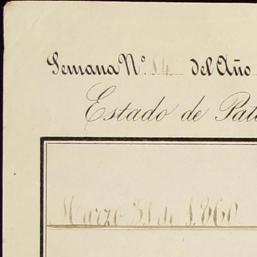 Semana Nº 14 del Año
Estado de Pat
Marzo 31 de 1860